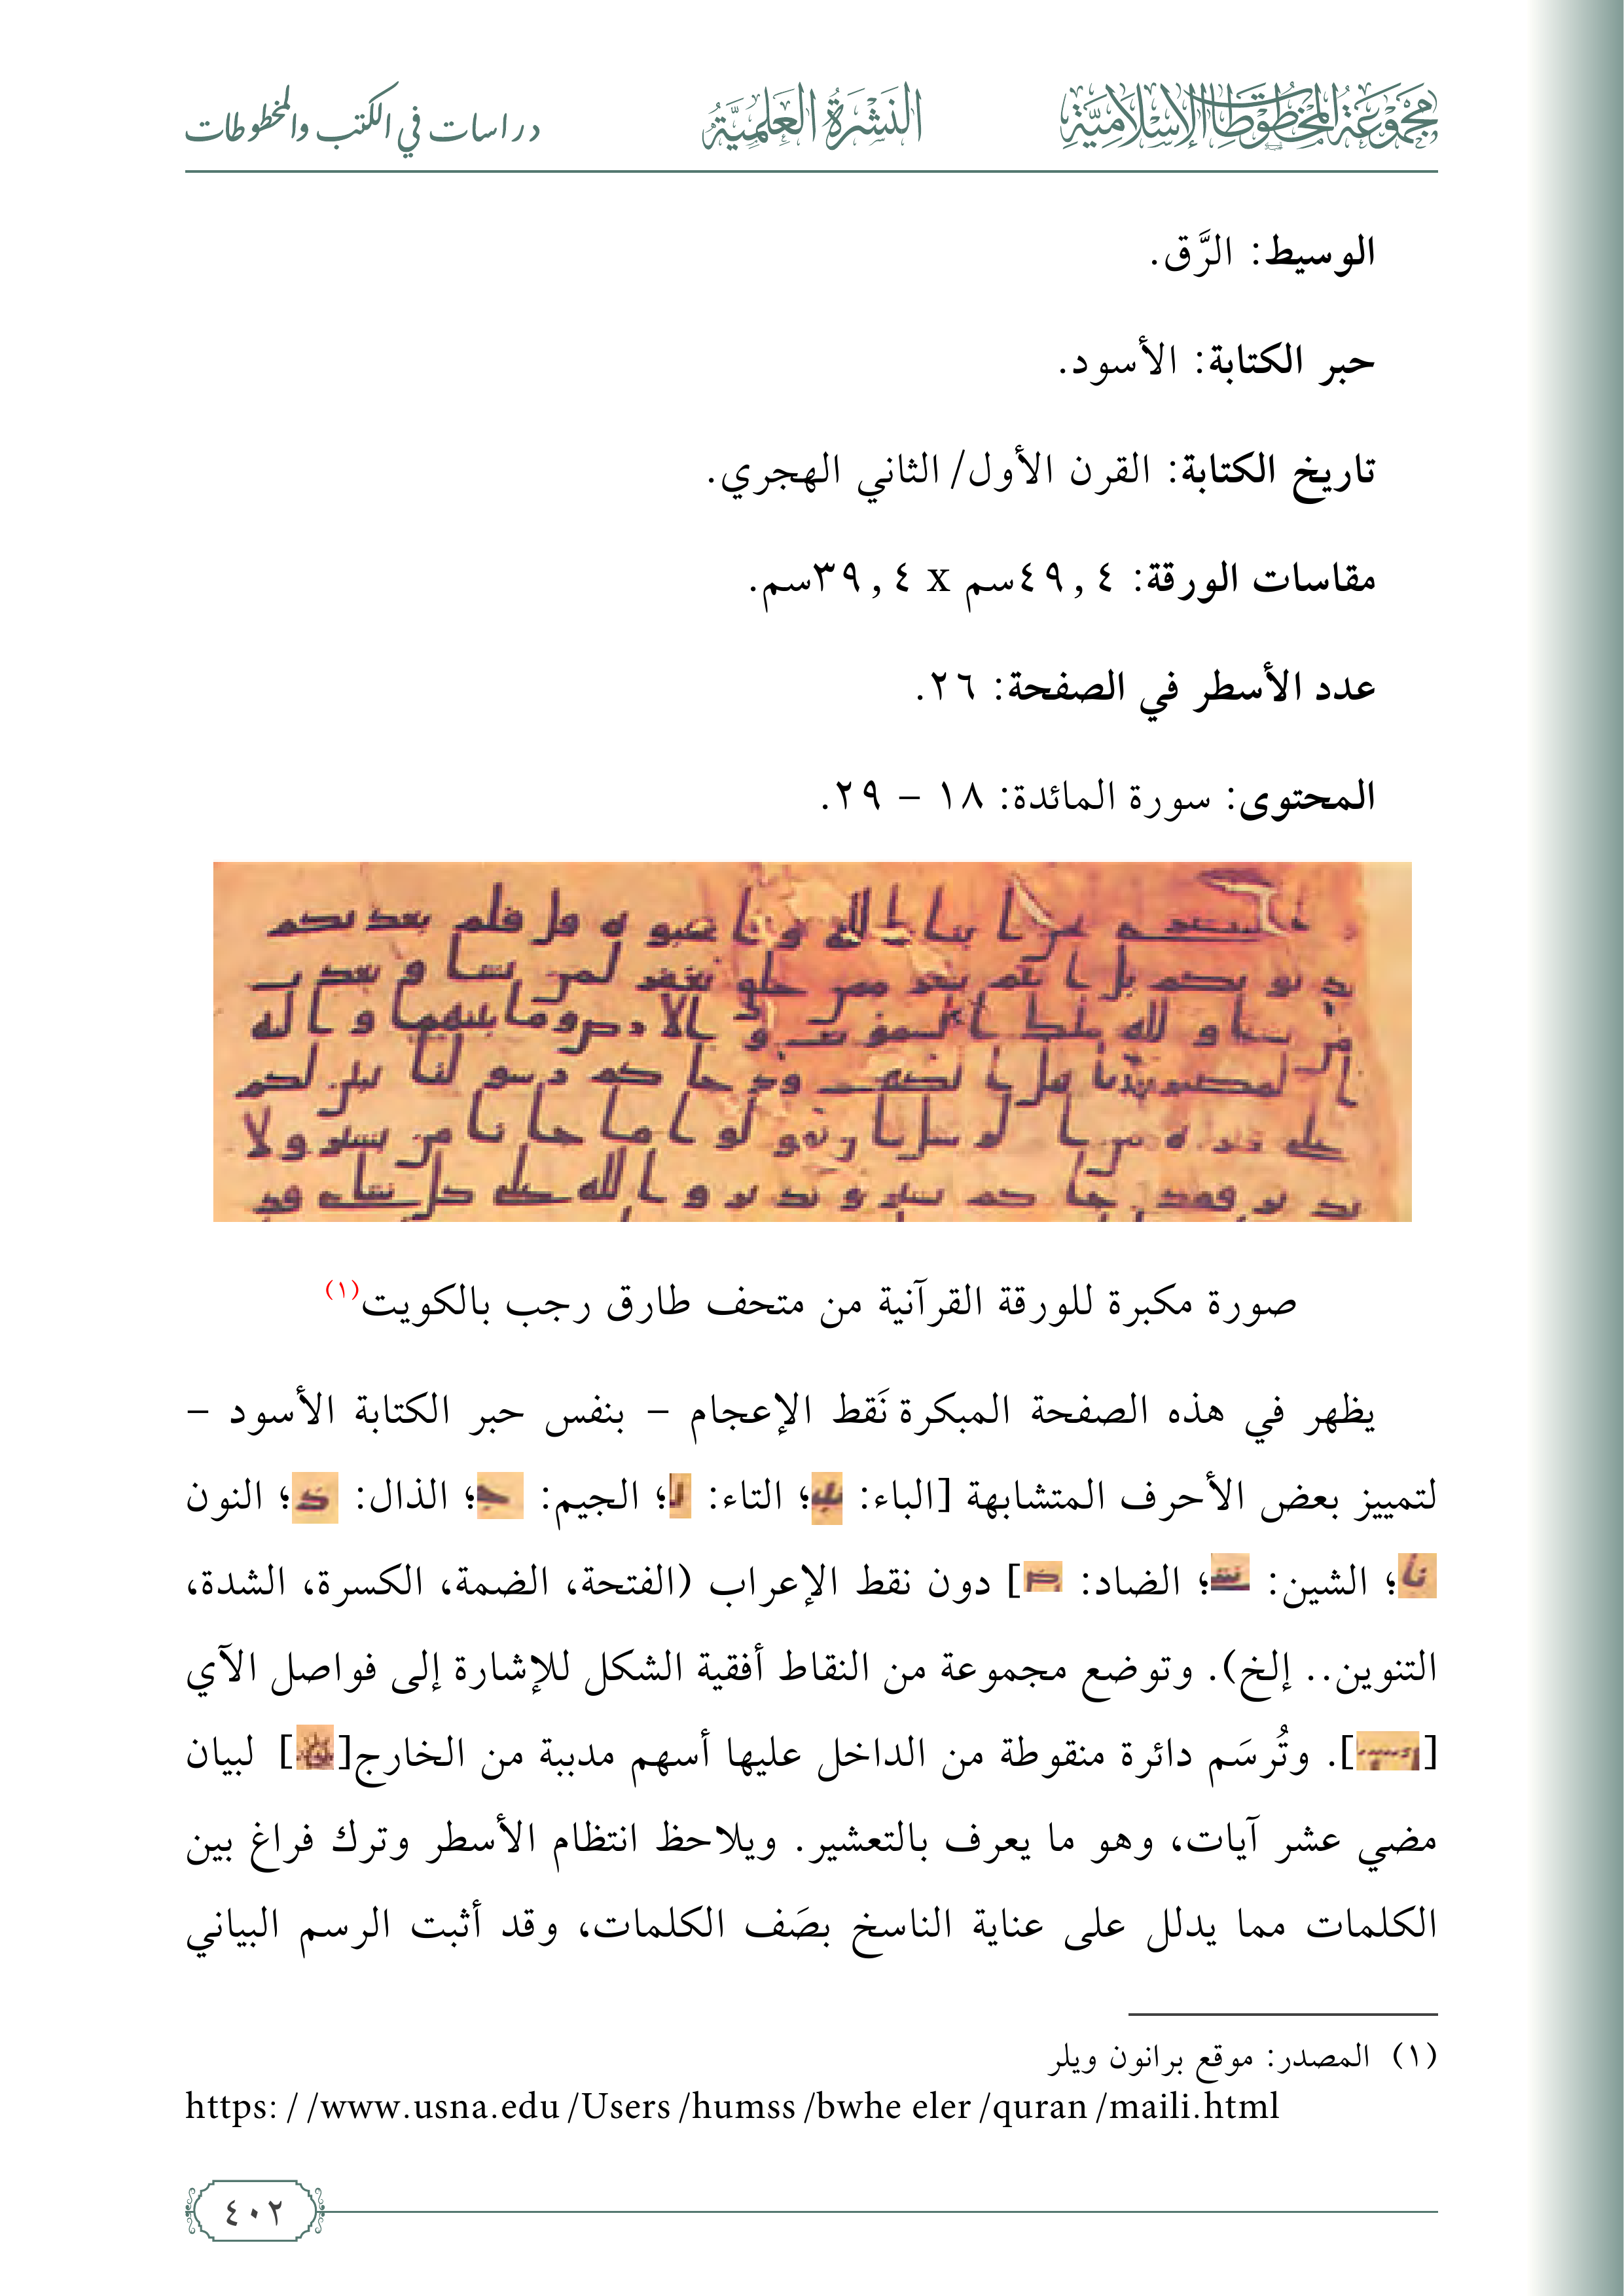 مجموعة المخطوطات الإسلامية
النَشْرَةُ العِلْمِيَّةُ
دراسات في الكتب والمخطوطات
الوسيط: الرَّق.
حبر الكتابة: الأسود.
تاريخ الكتابة: القرن الأول/ الثاني الهجري.
مقاسات الورقة: ٤٩,٤سم x ٣٩,٤سم.
عدد الأسطر في الصفحة: ٢٦.
المحتوى: سورة المائدة: ١٨ – ٢٩.
صورة مكبرة للورقة القرآنية من متحف طارق رجب بالكويت(١)
يظهر في هذه الصفحة المبكرة نَقط الإعجام – بنفس حبر الكتابة الأسود –
لتمييز بعض الأحرف المتشابهة [الباء: ؛ التاء: ؛ الجيم: ؛ الذال: ؛ النون
؛ الشين: ؛ الضاد: ] دون نقط الإعراب (الفتحة، الضمة، الكسرة، الشدة،
التنوين.. إلخ). وتوضع مجموعة من النقاط أفقية الشكل للإشارة إلى فواصل الآي
[ ]. وتُرسَم دائرة منقوطة من الداخل عليها أسهم مدببة من الخارج[ ] لبيان
مضي عشر آيات، وهو ما يعرف بالتعشير. ويلاحظ انتظام الأسطر وترك فراغ بين
الكلمات مما يدلل على عناية الناسخ بصَف الكلمات، وقد أثبت الرسم البياني
(١) المصدر: موقع برانون ويلر
https: / /www.usna.edu /Users /humss /bwhe eler /quran /maili.html
٤٠٢